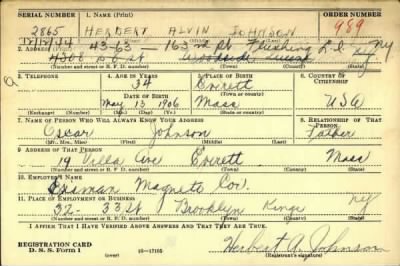 SERIAL NUMBER 1. NAME (Print) ORDER NUMBER
2865 HERBERT ALVIN JOHNSON 989
(First) (Middle) (Last)
43-63 - 163rd St Flushing L.I. NY
2. ADDRESS
(Number and street or R. F. D. number) (Town) (County) (State)
3. TELEPHONE 4. AGE IN YEARS 5. PLACE OF BIRTH 6. COUNTRY OF CITIZENSHIP
34 Everett
DATE OF BIRTH (Town or county)
May 13 1906 Mass USA
(Exchange) (Number) (Mo.) (Day) (Yr.) (State or country)
7. NAME OF PERSON WHO WILL ALWAYS KNOW YOUR ADDRESS 8. RELATIONSHIP OF THAT PERSON
Oscar Johnson Father
(Mr., Mrs., Miss) (First) (Middle) (Last)
9. ADDRESS OF THAT PERSON
19 Villa Ave Everett Mass
(Number and street or R. F. D. number) (Town) (County) (State)
10. EMPLOYER'S NAME
Magneto Cor.
11. PLACE OF EMPLOYMENT OR BUSINESS
32 - 33 St Brooklyn Kings NY
(Number and street or R. F. D. number) (Town) (County) (State)
I AFFIRM THAT I HAVE VERIFIED ABOVE ANSWERS AND THAT THEY ARE TRUE.
REGISTRATION CARD
D. S. S. Form 1 (over) 16—17105 Herbert A. Johnson
(Registrant's signature)